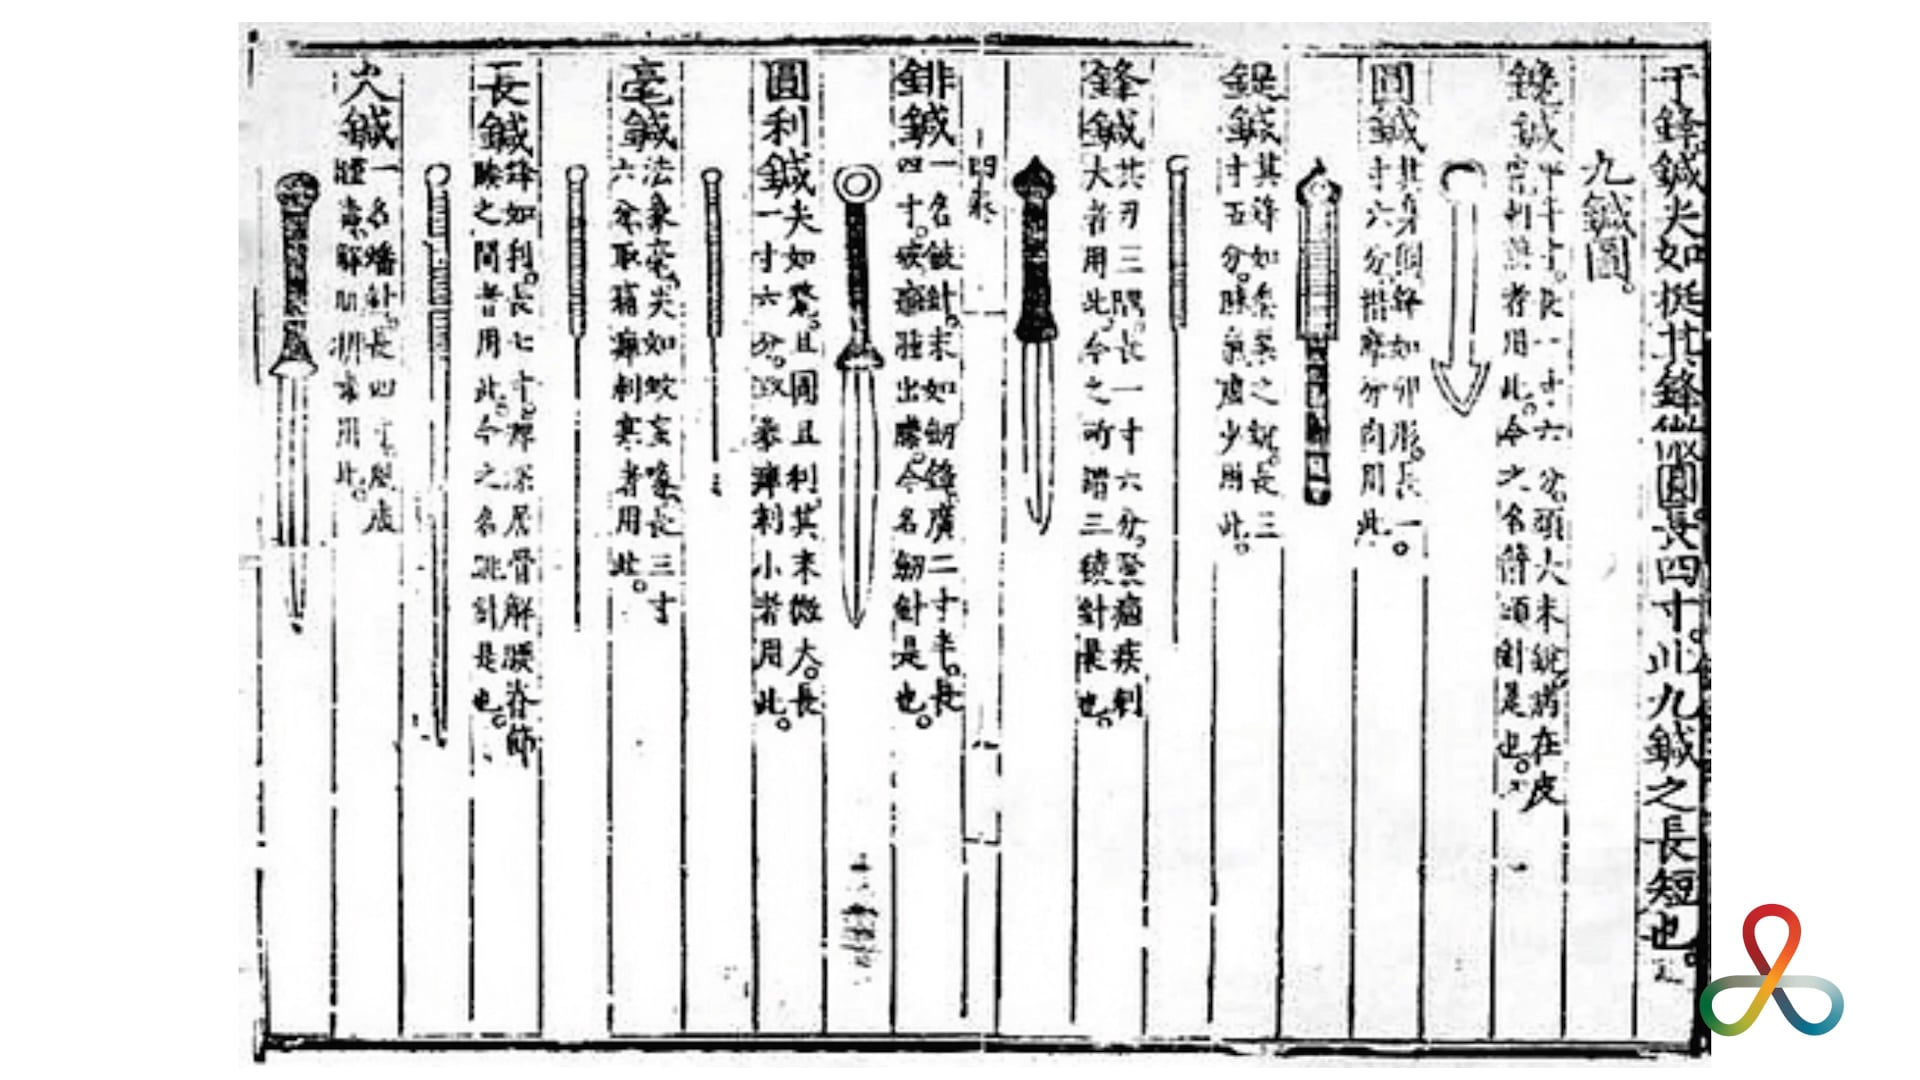 于鋒鍼尖如挺其鋒微圓長四寸此九鍼之長短也
九鍼圖
鑱鍼平半寸長一寸六分頭大末銳病在皮
膚刺熱者用此今之名箭頭針是也
圓鍼其身圓鋒如卵形長一
寸六分揩摩分肉用此
鍉鍼其鋒如黍粟之銳長三
寸五分脉氣虛少用此
鋒鍼其刃三隅長一寸六分發痼疾刺
大者用此今之所謂三稜針是也
鈹鍼一名鈹針末如劒鋒廣二寸半長
四寸破癰腫出膿今名劒針是也
圓利鍼尖如氂且圓且利其末微大長
一寸六分取暴痺刺小者用此
毫鍼法象毫尖如蚊虻喙長三寸
六分取痛痺刺寒者用此
長鍼鋒如利長七寸痺深居骨解腰脊節
腠之間者用此今之名跳針是也
火鍼一名燔針長四寸風虛
腫毒解肌排毒用此